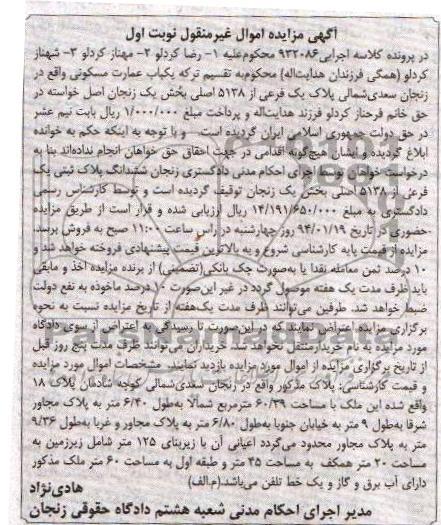 آگهی مزایده اموال غیرمنقول نوبت اول
در پرونده کلاسه اجرایی ۹۳۲۰۸۶ محکوم‌علیه ۱- رضا کردلو ۲- مهناز کردلو ۳- شهناز
کردلو (همگی فرزندان هدایت‌اله) محکوم‌به تقسیم ترکه یکباب عمارت مسکونی واقع در
زنجان سعدی‌شمالی پلاک یک فرعی از ۵۱۳۸ اصلی بخش یک زنجان اصل خواسته در
حق خانم فرحناز کردلو فرزند هدایت‌اله و پرداخت مبلغ ۱/۰۰۰/۰۰۰ ریال بابت نیم عشر
در حق دولت جمهوری اسلامی ایران گردیده است. و با توجه به اینکه حکم به خوانده
ابلاغ گردیده و ایشان هیچ‌گونه اقدامی در جهت احقاق حق خواهان انجام نداده‌اند بنا به
درخواست خواهان توسط اجرای احکام مدنی دادگستری زنجان ششدانگ پلاک ثبتی یک
فرعی از ۵۱۳۸ اصلی بخش یک زنجان توقیف گردیده است و توسط کارشناس رسمی
دادگستری به مبلغ ۱۴/۱۹۱/۶۵۰/۰۰۰ ریال ارزیابی شده و قرار است از طریق مزایده
حضوری در تاریخ ۹۴/۰۱/۱۹ روز چهارشنبه در راس ساعت ۱۱:۰۰ صبح به فروش برسد.
مزایده از قیمت پایه کارشناسی شروع و به بالاترین قیمت پیشنهادی فروخته خواهد شد و
۱۰ درصد ثمن معامله نقدا یا به‌صورت چک بانکی(تضمینی) از برنده مزایده اخذ و مابقی
باید ظرف مدت یک هفته موصول گردد در غیر این‌صورت ۱۰ درصد ماخوذه به نفع دولت
ضبط خواهد شد. طرفین می‌توانند ظرف مدت یک‌هفته از تاریخ مزایده نسبت به نحوه
برگزاری مزایده اعتراض نمایند که در این‌صورت تا رسیدگی به اعتراض از سوی دادگاه
مورد مزایده به نام خریدار منتقل نخواهد شد. خریداران می‌توانند ظرف مدت پنج روز قبل
از تاریخ برگزاری مزایده از اموال مورد مزایده بازدید نمایند. مشخصات اموال مورد مزایده
و قیمت کارشناسی: پلاک مذکور واقع در زنجان سعدی‌شمالی کوچه شادمان پلاک ۱۸
واقع شده این ملک با مساحت ۶۰/۳۹ مترمربع شمالا به‌طول ۶/۴۰ متر به پلاک مجاور
شرقا به‌طول ۹ متر به خیابان جنوبا به‌طول ۶/۸۰ متر به پلاک مجاور و غربا به‌طول ۹/۳۶
متر به پلاک مجاور محدود می‌گردد اعیانی آن با زیربنای ۱۲۵ متر شامل زیرزمین به
مساحت ۲۰ متر همکف به مساحت ۴۵ متر و طبقه اول به مساحت ۶۰ متر ملک مذکور
دارای آب برق و گاز و یک خط تلفن می‌باشد.(م.الف)
هادی‌نژاد
مدیر اجرای احکام مدنی شعبه هشتم دادگاه حقوقی زنجان